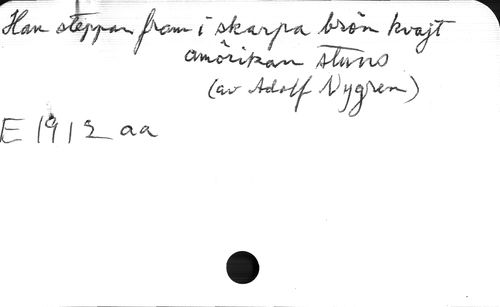 Han steppan fram i skarpa brön kvajt
amörikan stans
(av Adolf Nygren)
E 1912 aa